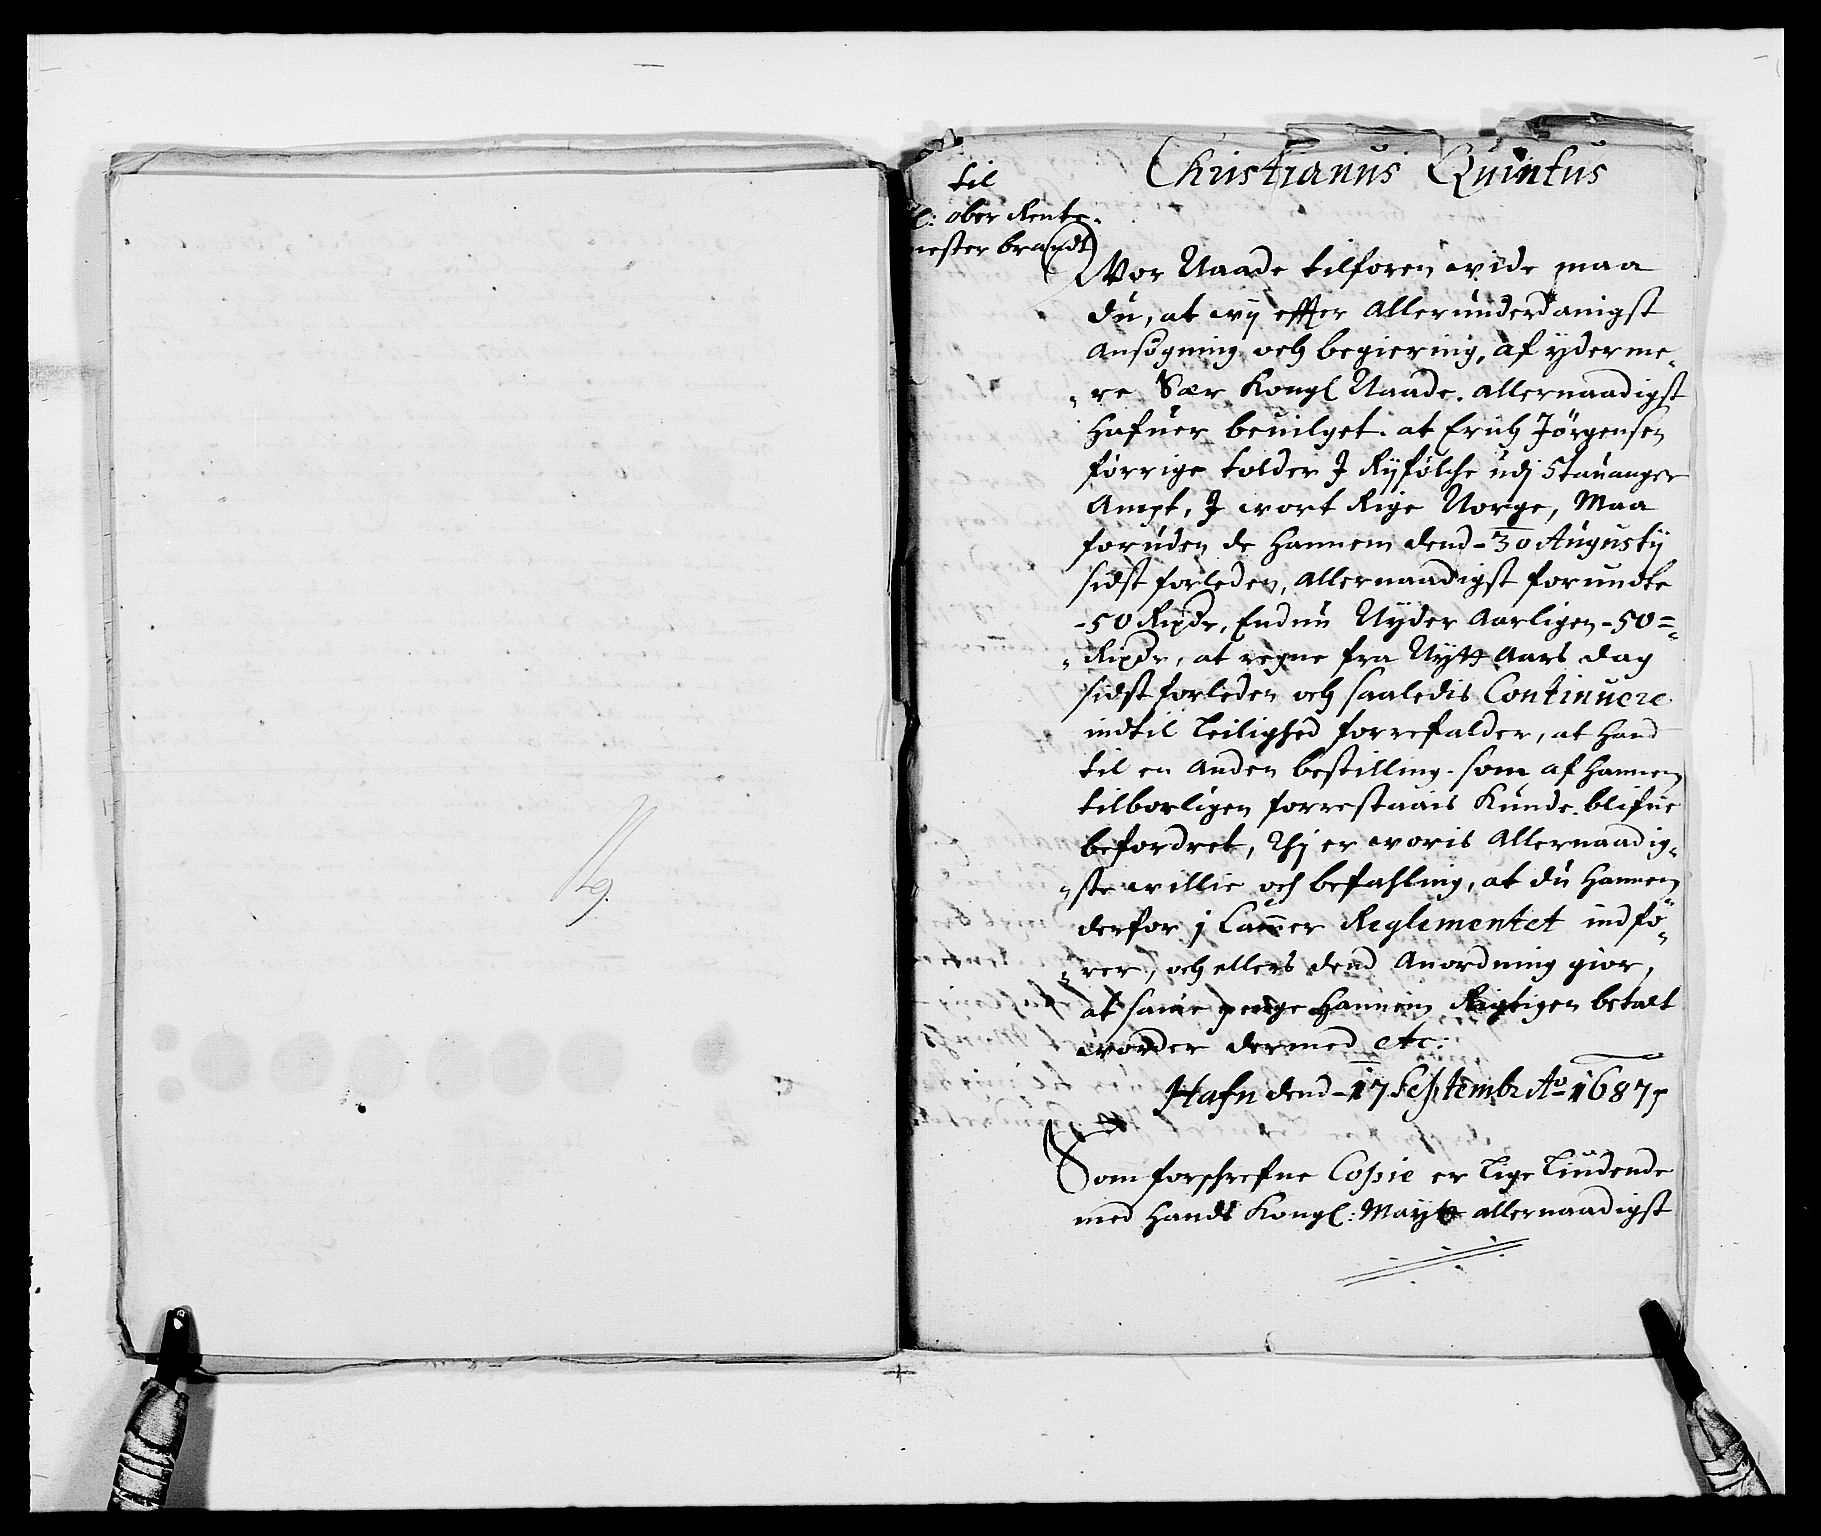 Christianus Quintus
til
l: ober Rente-
mester brandt
Wor Naade tilforen wide maa
du, at wij effter Allerunderdanigst
Ansögning och begiering, af yderme-
re Sær Kongl Naade. allernaadigst
Hafuer beuilget. at Erich Jörgensen
förrige tolder J Ryfölche udj Stauanger
Ampt, J wort Rige Norge, Maa
foruden de Hannem dend 30 Augusty
sidst forleden, Allernaadigst forundte
50 Rixdr, Endnu Nyder Aarligen 50
Rixdr, at regne fra Nytt Aars dag
sidst forleden och saaledis Continuere
indtil Leilighed forrefalder, at Hand
til en anden bestilling. som af Hannem
tilborligen forrestaais Kunde. blifue
befordret, Thj er woris Allernaadig-
ste willie och befahling, at du Hannem
derfor j Cammer Reglementet indfö-
rer, och ellers dend Anordning giör,
at same penge Hannem Rigtigen betalt
worder dermed etc:
Hafn dend 17 Septembr Ao 1687
Som forschrefne Copie er Lige Liudende
med Hands Kongl: Maytt allernaadigst
19.